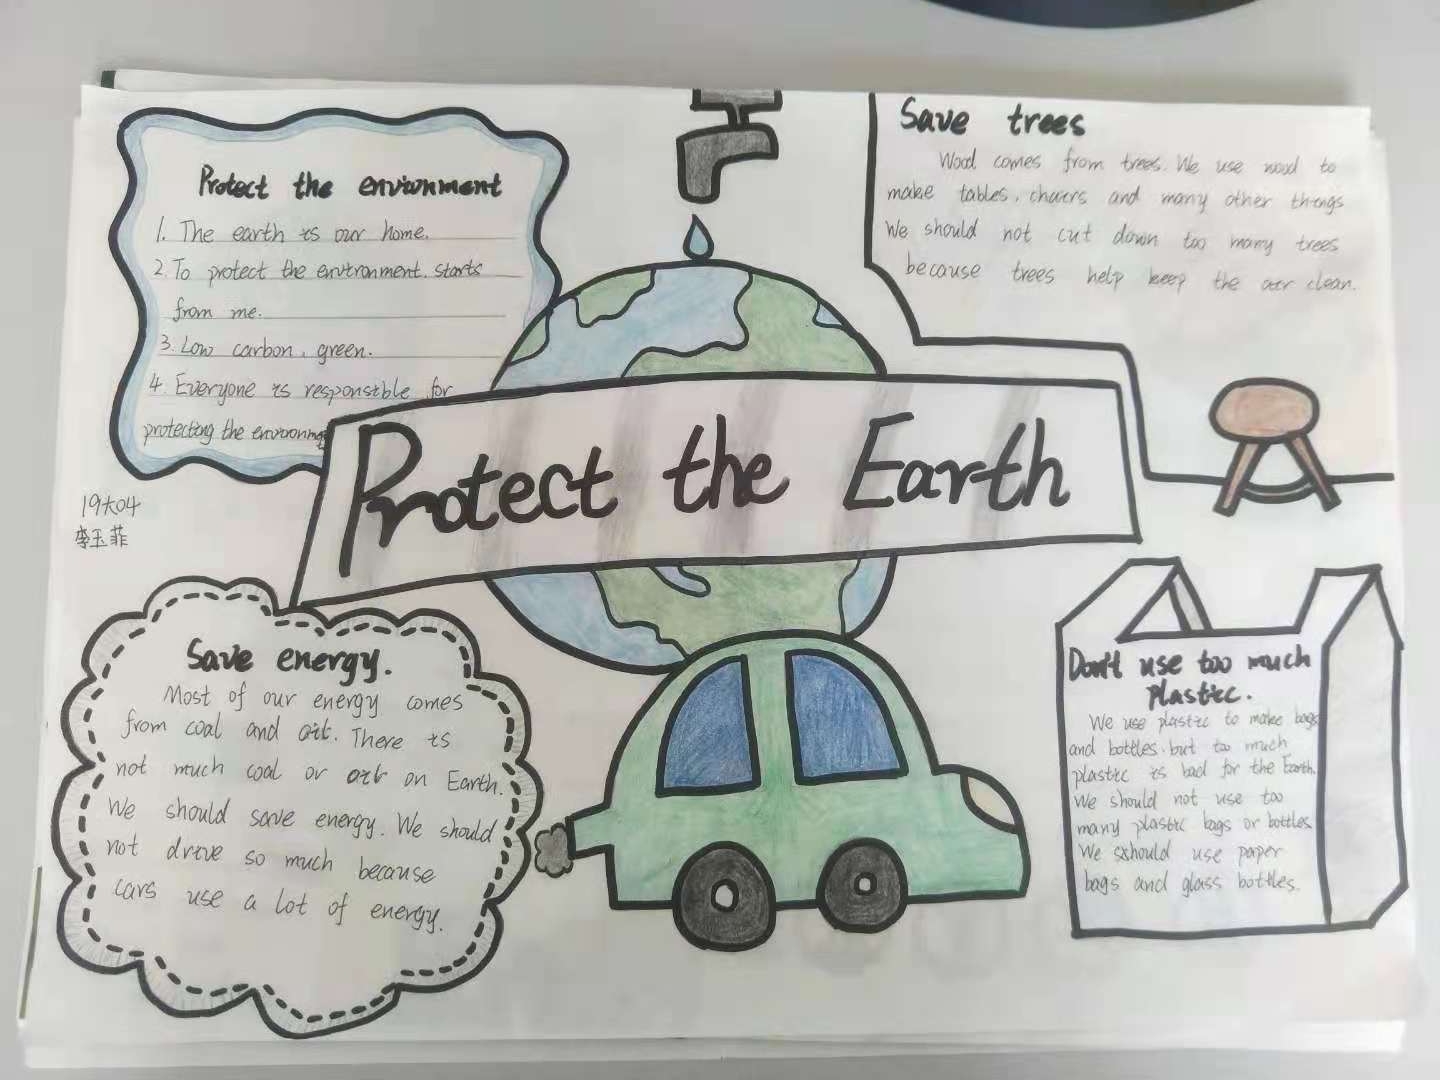 Protect the environment
1. The earth is our home.
2. To protect the environment. starts
from me.
3. Low carbon, green.
4. Everyone is responsible for
protecting the environm
19大04
李玉菲
Protect the Earth
Save trees
Wood comes from trees. We use wood to
make tables, chairs and many other things
We should not cut down too many trees
because trees help keep the air clean.
Save energy.
Most of our energy comes
from coal and oil. There is
not much coal or oil on Earth.
We should save energy. We should
not drive so much because
cars use a lot of energy.
Don't use too much
plastic.
We use plastic to make bags
and bottles. but too much
plastic is bad for the Earth.
We should not use too
many plastic bags or bottles.
We sshould use paper
bags and glass bottles.